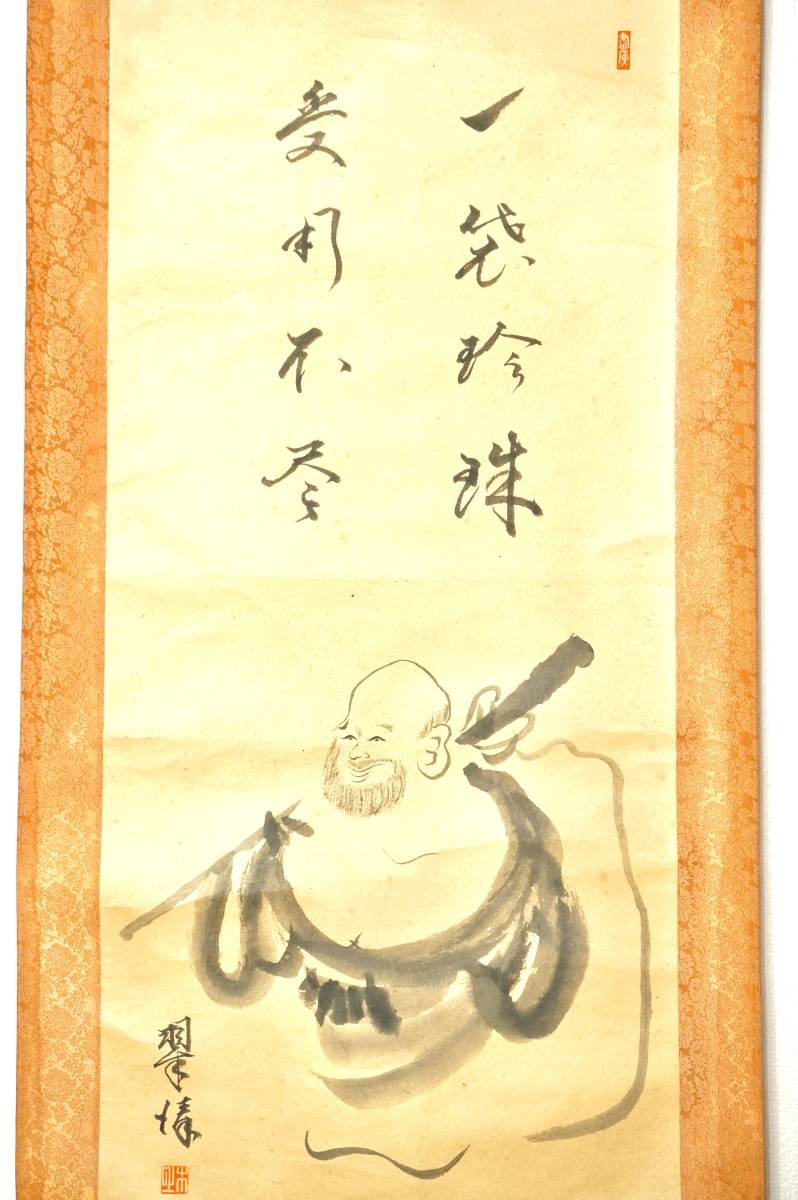 一袋珍珠
受用不尽